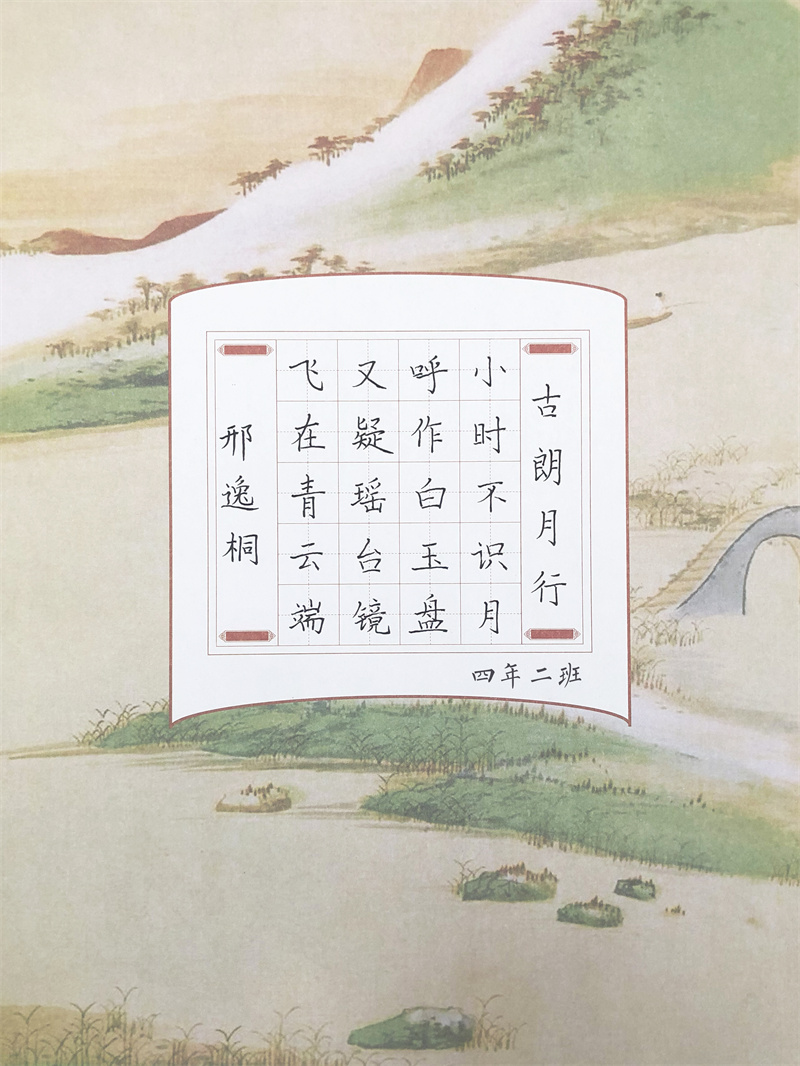 古朗月行
小时不识月
呼作白玉盘
又疑瑶台镜
飞在青云端
邢逸桐
四年二班